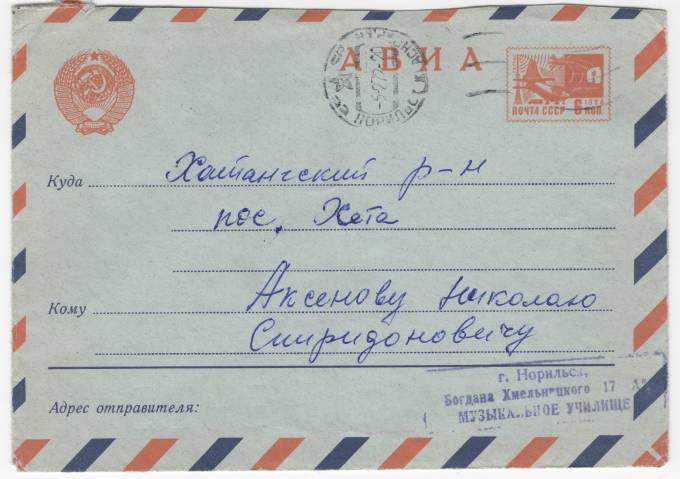 АВИА
ПОЧТА СССР 6 КОП.
Куда Хатангский р-н
пос. Хета
Кому Аксенову Николаю
Спиридоновичу
Адрес отправителя:
г. Норильск,
Богдана Хмельницкого 17
МУЗЫКАЛЬНОЕ УЧИЛИЩЕ